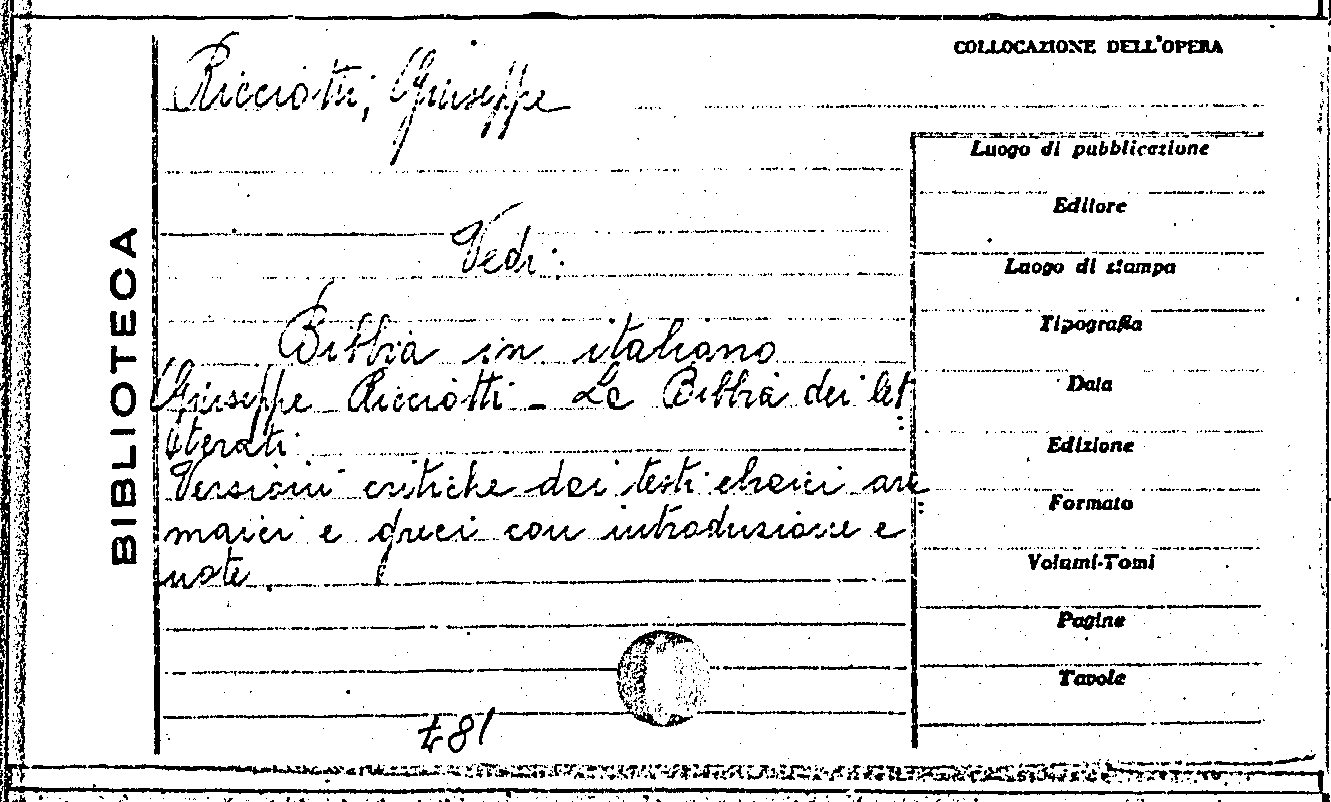 COLLOCAZIONE DELL'OPERA
Ricciotti, Giuseppe
Vedi:
Bibbia in italiano
Giuseppe Ricciotti - La Bibbia dei let
terati
Versioni critiche dai testi ebraici ara
maici e greci con introduzione e
note.
BIBLIOTECA
Luogo di pubblicazione
Editore
Luogo di stampa
Tipografia
Data
Edizione
Formato
Volumi-Tomi
Pagine
Tavole